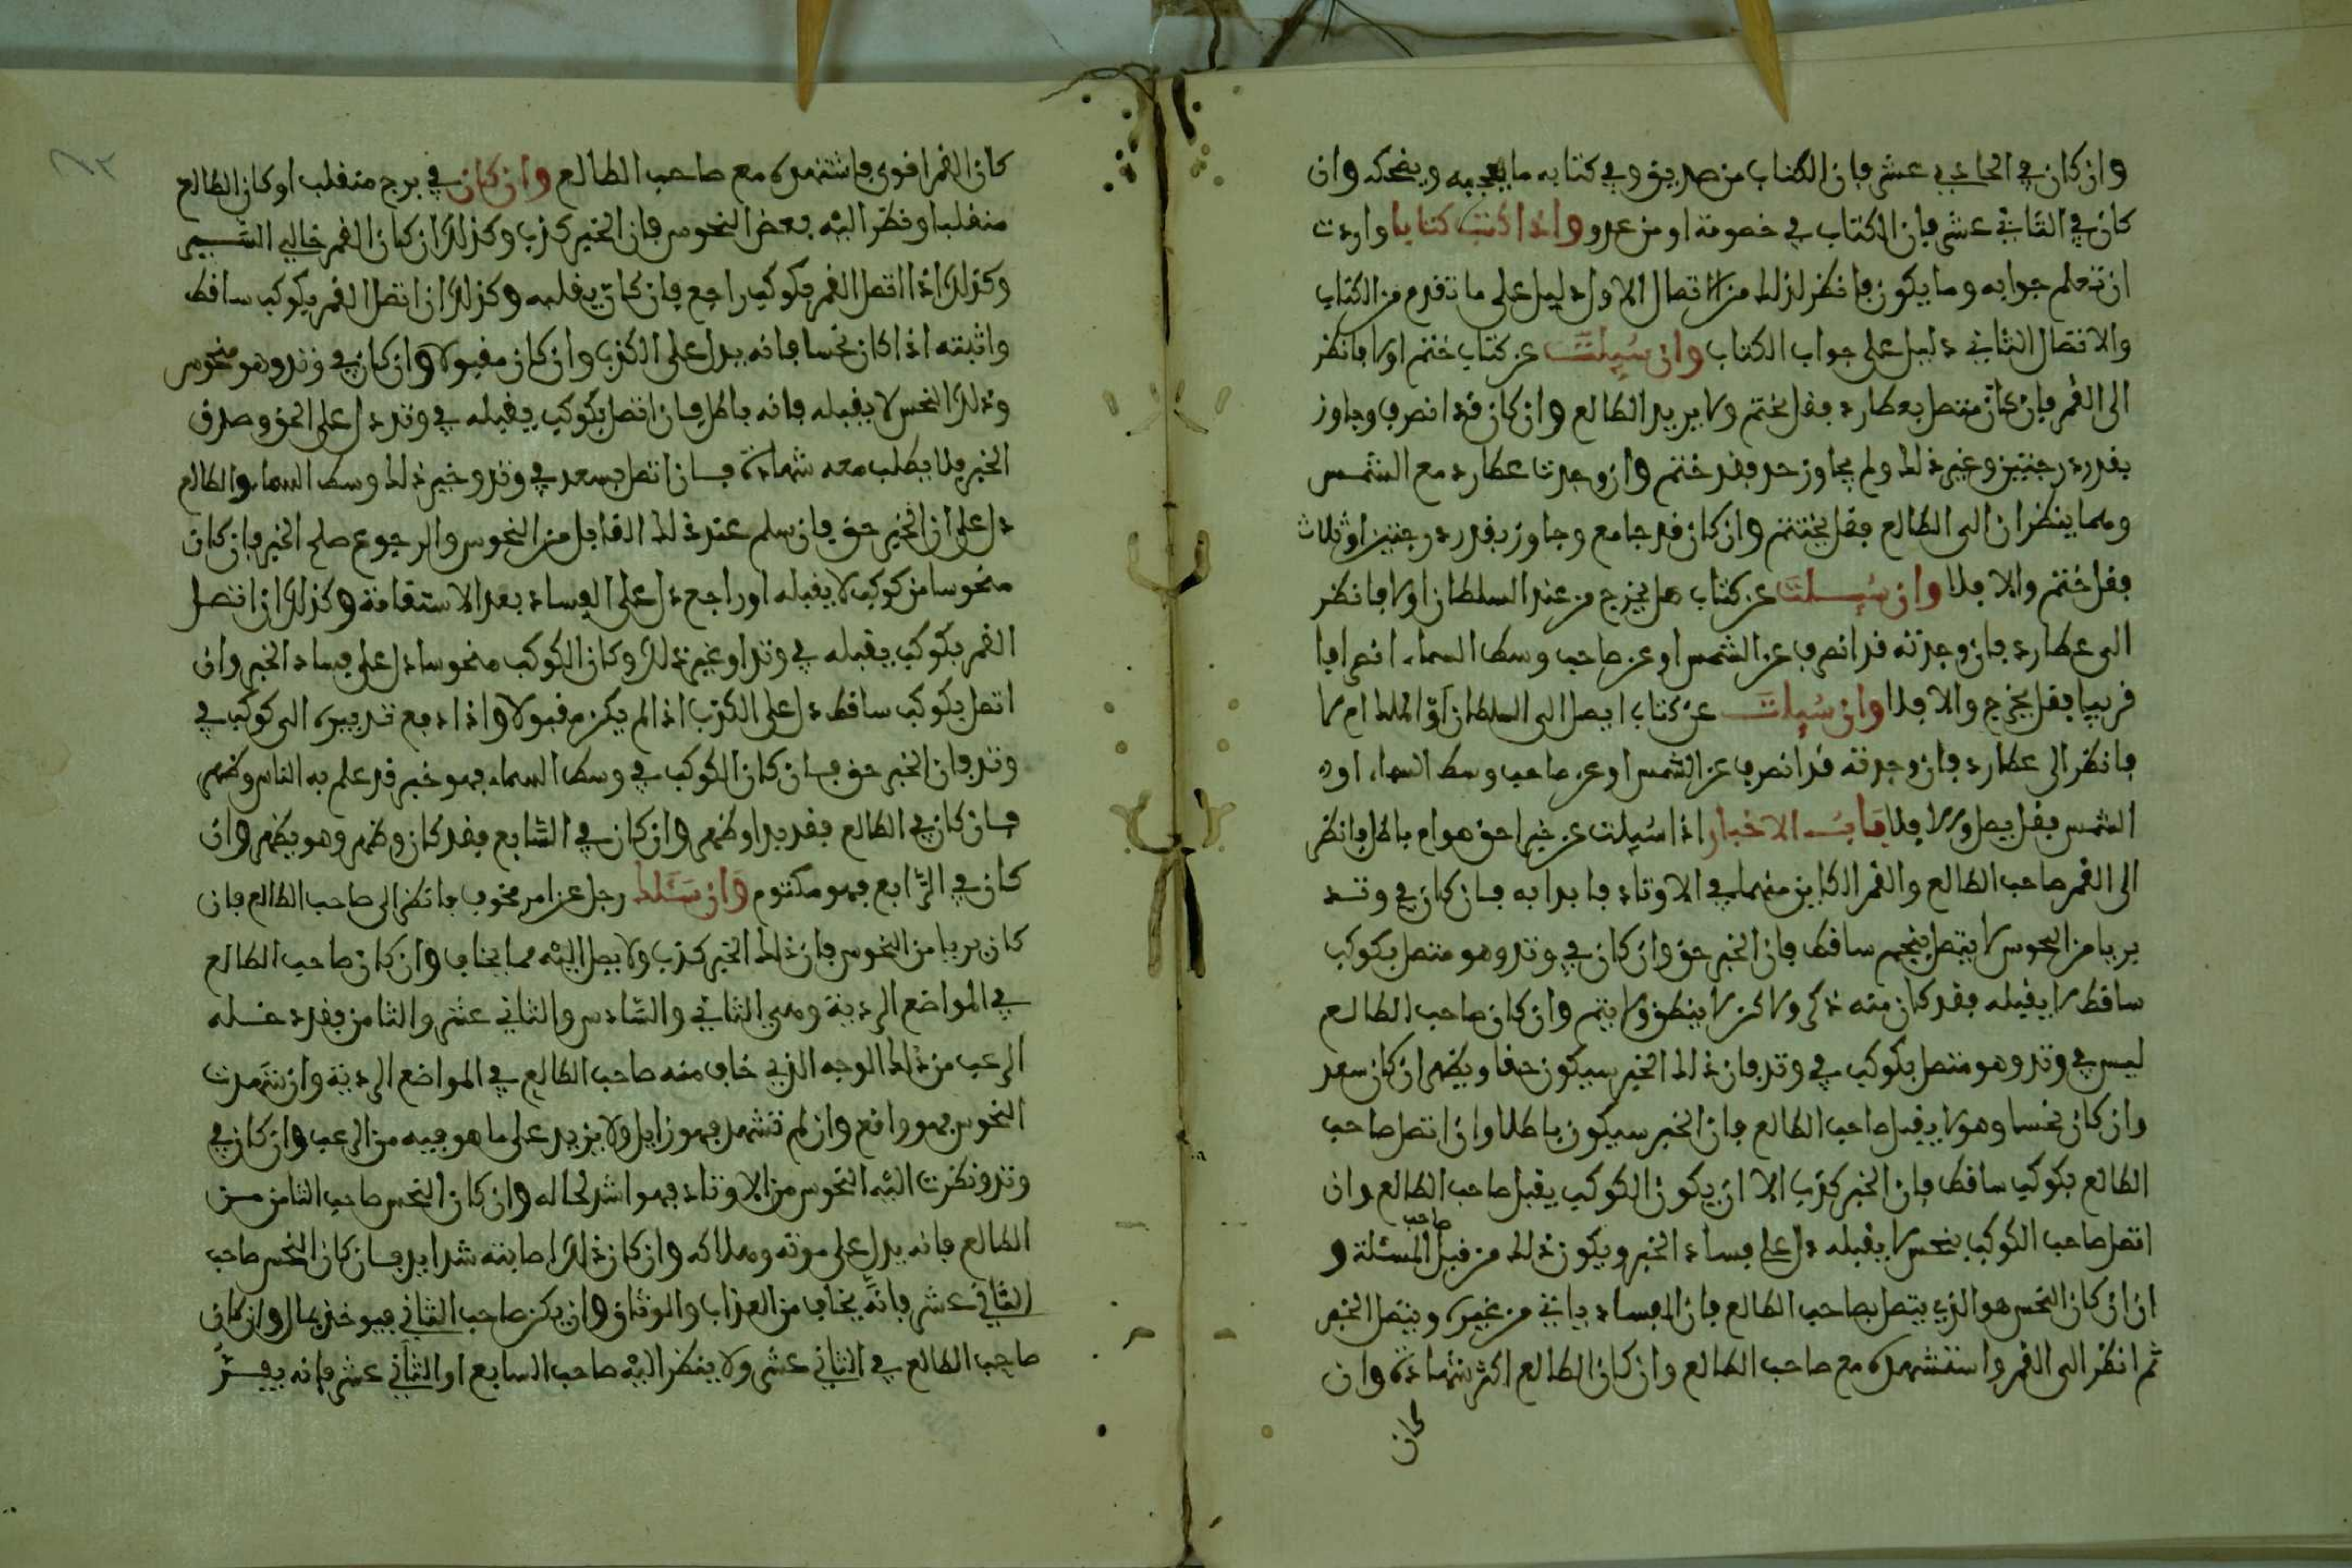 وان كان في الحادي عشر فان الكتاب من صديق وفي كتابه ما يعجبه ويضحكه وان
كان في الثاني عشر فان الكتاب في خصومة او من عدو واذا كتبت كتابا واردت
ان تعلم جوابه وما يكون فانظر لذلك من الاتصال الاول دليل على ما تقدم من الكتاب
والاتصال الثاني دليل على جواب الكتاب وان سُيلتَ عن كتاب ختم اولا فانظر
الى القمر فان كان متصل بعطارد فقل يختم ولا يريد الطالع وان كان قد انصرف وجاوز
بقدر درجتين وغير ذلك ولم يجاوز حد فقد ختم وان وجدت عطارد مع الشمس
وهما ينظران الى الطالع فقل يختتم وان كان قد جامع وجاوز بقدر درجتين او ثلاث
فقل ختم والا فلا وان سُيلتَ عن كتاب هل يخرج من عند السلطان اولا فانظر
الى عطارد فان وجدته قد انصرف عن الشمس او عن صاحب وسط السماء انصرافا
قريبا فقل يخرج والا فلا وان سُيلتَ عن كتاب ايصل الى السلطان او الملك ام لا
فانظر الى عطارد فان وجدته قد انصرف عن الشمس او عن صاحب وسط السماء او
الشمس فقل يصل والا فلا بَابُ الاخبار اذا سُيلت عن خبر احق هو ام باطل فانظر
الى القمر صاحب الطالع والقمر الكاين منهما في الاوتاد فابدا به فان كان في وتد
بريا من النحوس لا يتصل بنجم ساقط فان الخبر حق وان كان في وتد وهو متصل بكوكب
ساقط لا يقبله فقد كان منه ذكر ولاكن لا ينطق ولا يتم وان كان صاحب الطالع
ليس في وتد وهو متصل بكوكب في وتد فان ذلك الخبر سيكون حقا ويظهر ان كان سعد
وان كان نحسا وهو لا يقبل صاحب الطالع فان الخبر سيكون باطلا وان اتصل صاحب
الطالع بكوكب ساقط فان الخبر كذب الا ان يكون الكوكب يقبل صاحب الطالع وان
اتصل صاحب الكوكب بنحس لا يقبله دل على فساد الخبر ويكون ذلك من قبل صاحب المسئلة و
ان ان كان النحس هو الذي يتصل بصاحب الطالع فان الفساد ياتي من غيره ويتصل الخبر
ثم انظر الى القمر واستشهده مع صاحب الطالع وان كان الطالع اكثر شهادة وان
كان
كان القمر اقوى فاشتهده مع صاحب الطالع وان كان في برج منقلب او كان الطالع
منقلبا ونظر اليه بعض النحوس فان الخبر كذب وكذلك ان كان القمر خالي السير
وكذلك اذا اتصل القمر بكوكب راجع فان كان يقلبه وكذلك ان اتصل القمر بكوكب ساقط
واثبته اذا كان نحسا فانه يدل على الكذب وان كان مقبولا وان كان في وتد وهو منحوس
وذلك النحس لا يقبله فانه باطل فان اتصل بكوكب يقبله في وتد دل على الحق وصدق
الخبر فلا يطلب معه شهادة فان اتصل بسعد في وتد وخير ذلك وسط السماء والطالع
دل على ان الخبر حق فان سلم عند ذلك القابل من النحوس والرجوع صلح الخبر فان كان
منحوسا من كوكب لا يقبله او راجع دل على الفساد بعد الاستقامة وكذلك ان اتصل
القمر بكوكب يقبله في وتد او غير ذلك وكان الكوكب منحوسا دل على فساد الخبر وان
اتصل بكوكب ساقط دل على الكذب اذا لم يكن مقبولا واذا دفع تدبيره الى كوكب في
وتد فان الخبر حق فان كان الكوكب في وسط السماء فهو خبر قد علم به الناس وظهر
فان كان في الطالع فقد بدا وظهر وان كان في السّابع فقد كان وظهر وهو يظهر وان
كان في الرّابع فهو مكتوم وَان سَئَلك رجل عن امر مخوف فانظر الى صاحب الطالع فان
كان بريا من النحوس فان ذلك الخبر كذب ولا يصل اليه مما يخاف وان كان صاحب الطالع
في المواضع الردية وهي الثاني والسّادس والثاني عشر والثامن فقد دخله
الرعب من ذلك الوجه الذي خاف منه صاحب الطالع في المواضع الردية وان شهدت
النحوس فهو واقع وان لم تشهد فهو زايل ولا يزيد على ما هو فيه من الرعب وان كان في
وتد ونظرت اليه النحوس من الاوتاد فهو اشد لحاله وان كان النحس صاحب الثامن من
الطالع فانه يدل على موته وهلاكه وان كان ذلك اصابته شدايد فان كان النحس صاحب
الثّاني عشر فانه يخاف من العذاب والوثاق وان يكن صاحب الثاني فيوخذ بمال وان كان
صاحب الطالع في الثاني عشر ولا ينظر اليه صاحب السابع او الثاني عشر فانه يفرّ